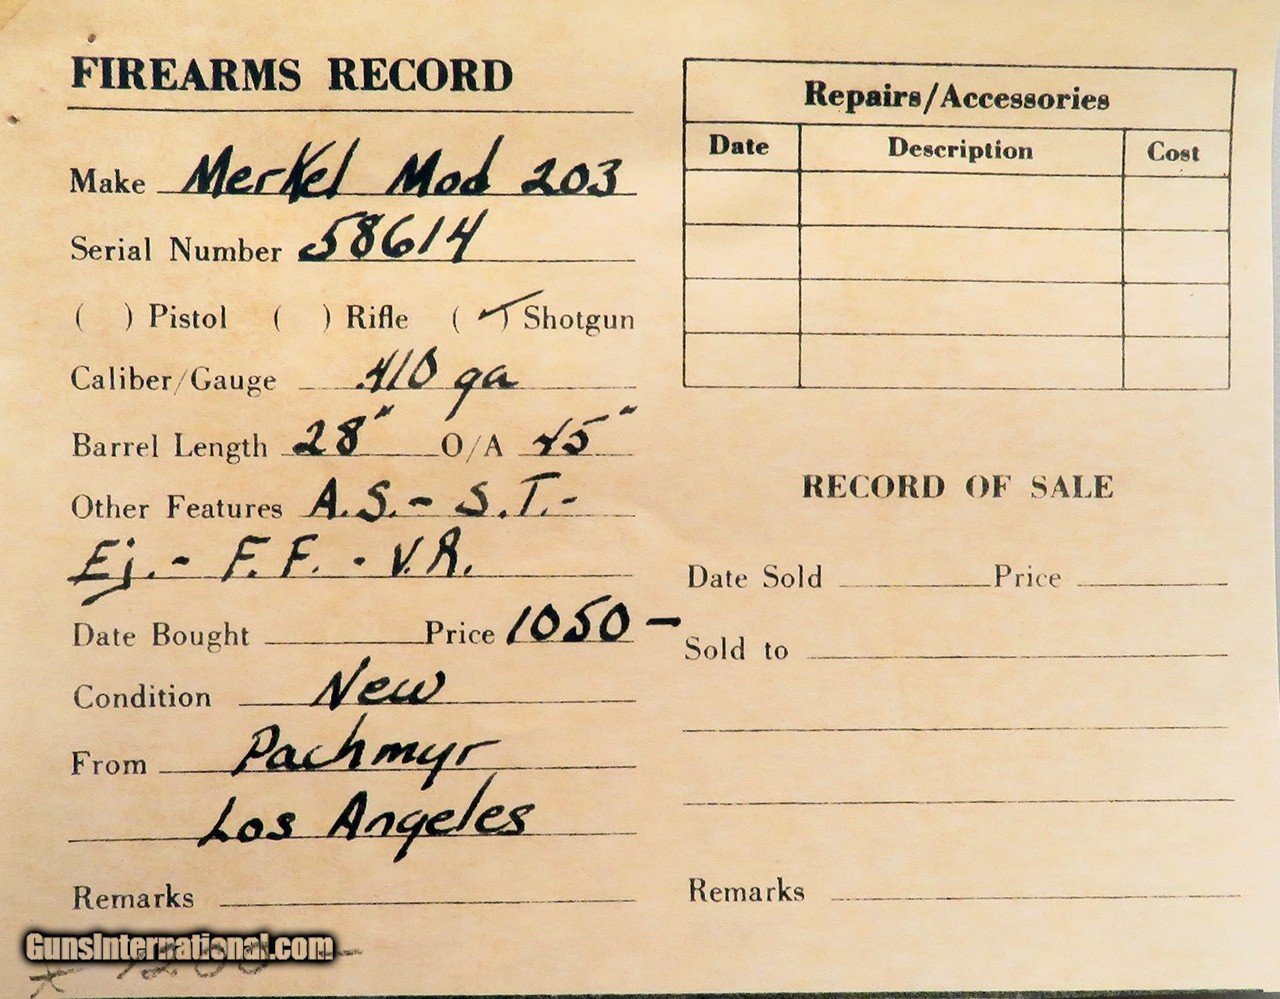 FIREARMS RECORD
Make Merkel Mod 203
Serial Number 58614
( ) Pistol ( ) Rifle (✓) Shotgun
Caliber/Gauge .410 ga
Barrel Length 28" O/A 45"
Other Features A.S.- S.T.-
Ej.- F.F. - V.R.
Date Bought Price 1050-
Condition New
From Pachmyr
Los Angeles
Remarks
GunsInternational.com
Repairs/Accessories
Date Description Cost
RECORD OF SALE
Date Sold Price
Sold to
Remarks